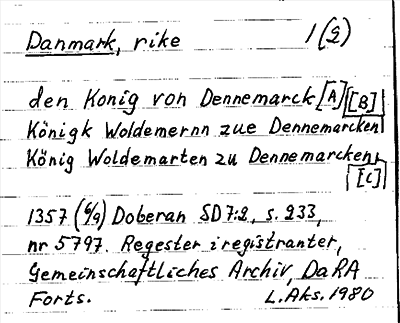 Danmark, rike 1 (G)
den Konig von Dennemarck [A] [B]
Königk Woldemernn zue Dennemarcken
König Woldemarten zu Dennemarcken,
[C]
1357 (6/9) Doberan SD 7:2, s. 233,
nr 5797. Regester i registranter,
Gemeinschaftliches Archiv, DaRA
Forts. L. Aks. 1980